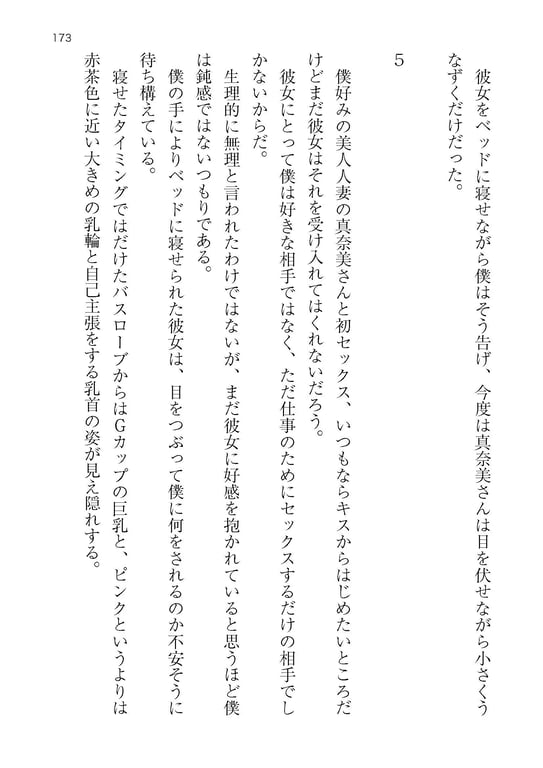 173
彼女をベッドに寝せながら僕はそう告げ、今度は真奈美さんは目を伏せながら小さくう
なずくだけだった。
5
僕好みの美人人妻の真奈美さんと初セックス、いつもならキスからはじめたいところだ
けどまだ彼女はそれを受け入れてはくれないだろう。
彼女にとって僕は好きな相手ではなく、ただ仕事のためにセックスするだけの相手でし
かないからだ。
生理的に無理と言われたわけではないが、まだ彼女に好感を抱かれていると思うほど僕
は鈍感ではないつもりである。
僕の手によりベッドに寝せられた彼女は、目をつぶって僕に何をされるのか不安そうに
待ち構えている。
寝せたタイミングではだけたバスローブからはGカップの巨乳と、ピンクというよりは
赤茶色に近い大きめの乳輪と自己主張をする乳首の姿が見え隠れする。